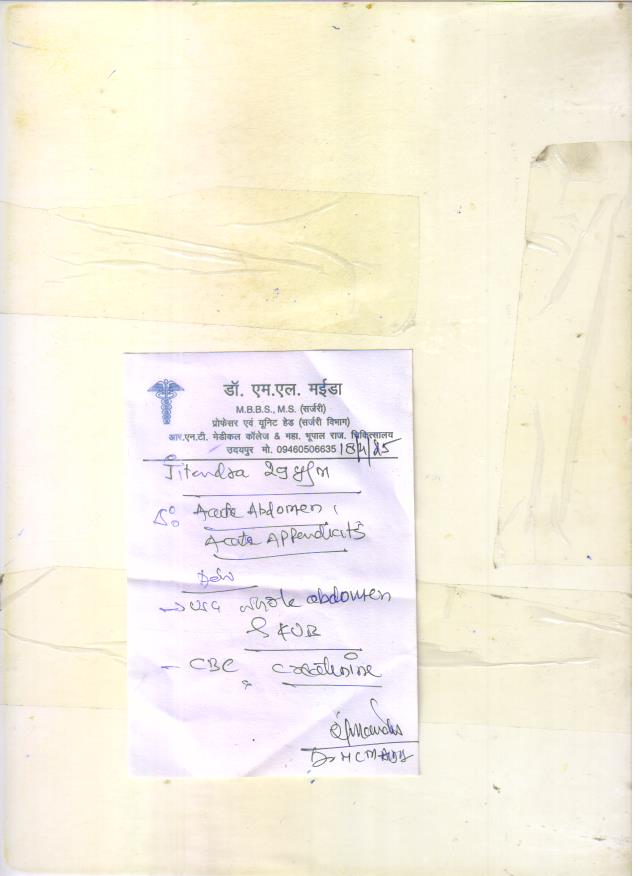 डॉ. एम.एल. मईडा
M.B.B.S., M.S. (सर्जरी)
प्रोफेसर एवं यूनिट हेड (सर्जरी विभाग)
आर.एन.टी. मेडीकल कॉलेज & महा. भूपाल राज. चिकित्सालय
उदयपुर मो. 09460506635 18/4/25
Jitendra 29 y/m
Acute Abdomen,
Acute Appendicits
→ USG whole abdomen
& KUB
– CBC & Creatinine